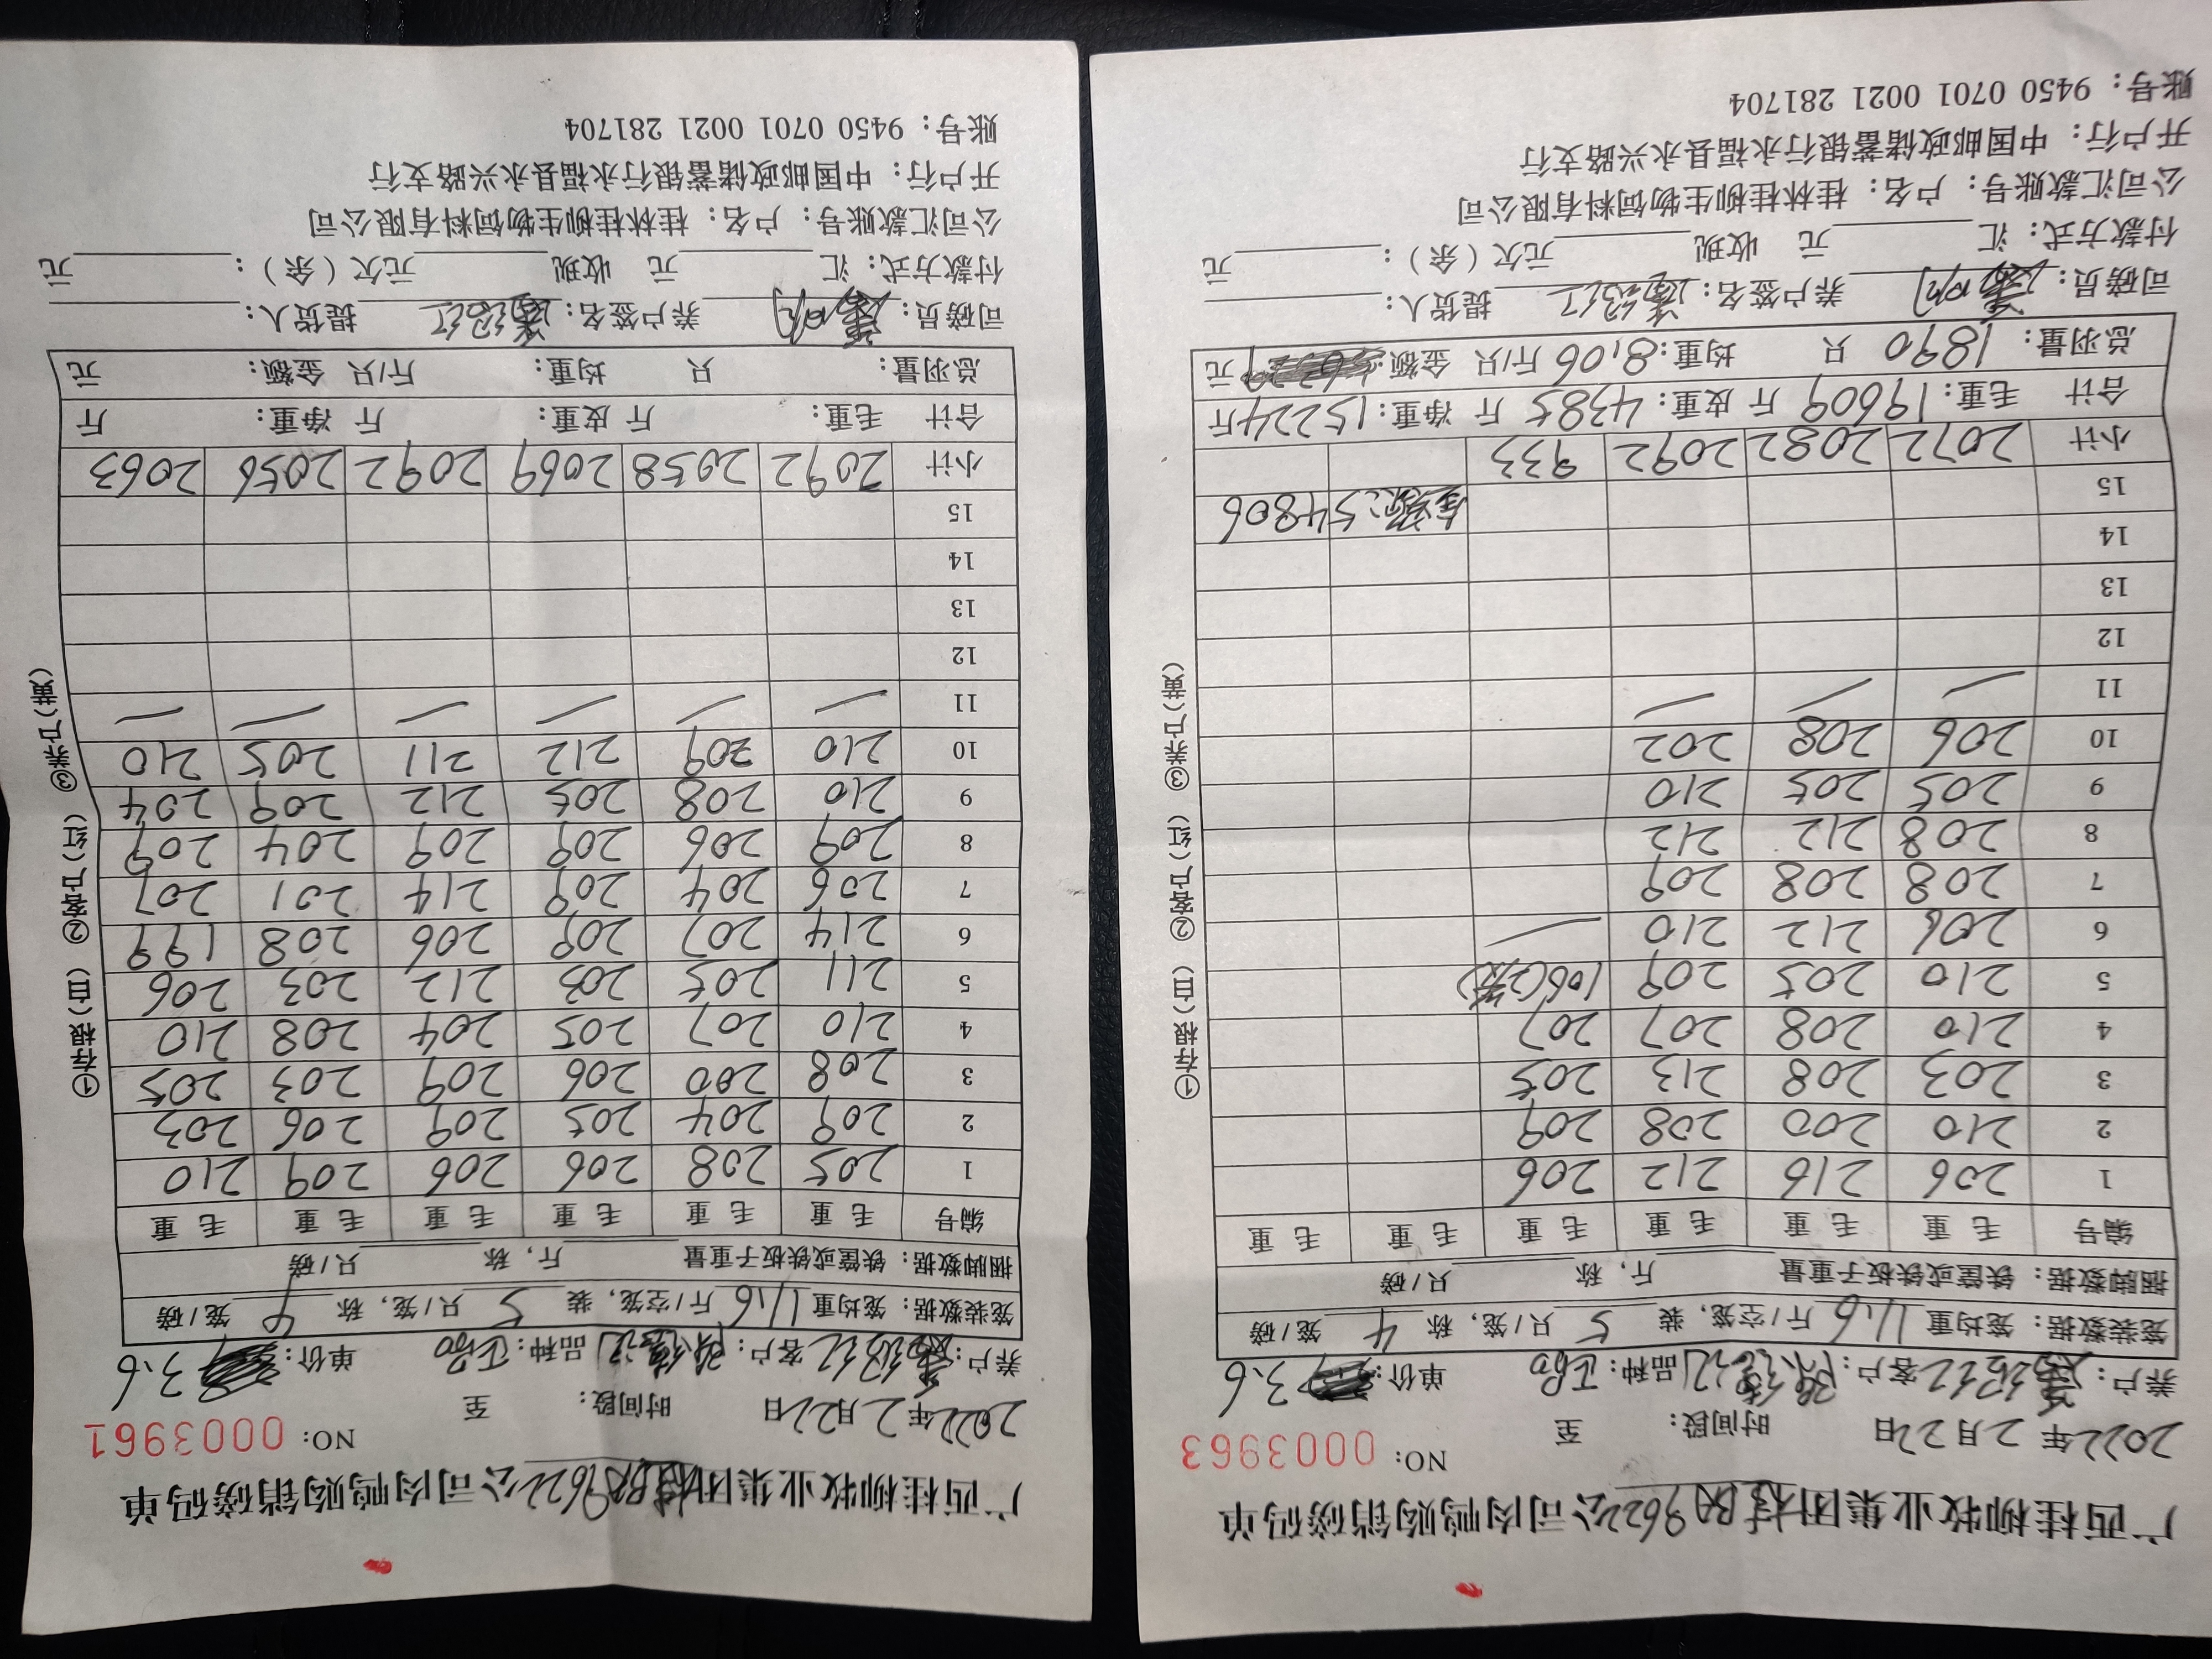 广西桂柳牧业集团桂BA9622公司肉鸭购销磅码单
NO: 0003963
2022年2月22日 时间段: 至
养户: 客户: 品种: 单价: 3.6
笼装数据: 笼均重 11.6 斤/空笼, 装 5 只/笼, 称 4 笼/磅
捆脚数据: 铁筐或铁板子重量 斤, 称 只/磅
编号 毛重 毛重 毛重 毛重 毛重 毛重
1 206 216 212 206
2 210 200 208 209
3 203 208 213 205
4 210 208 207 207
5 210 205 209 106(2笼)
6 206 212 210 —
7 208 208 209
8 208 212 212
9 205 205 210
10 206 208 202
11 — — —
12
13
14
15 金额:54806
小计 2072 2082 2092 933
合计 毛重: 19609 斤 皮重: 4385 斤 净重: 15224 斤
总羽量: 1890 只 均重: 8.06 斤/只 金额: 元
司磅员: 养户签名: 提货人:
付款方式: 汇 元 收现 元欠(余): 元
公司汇款账号: 户名: 桂林桂柳生物饲料有限公司
开户行: 中国邮政储蓄银行永福县永兴路支行
账号: 9450 0701 0021 281704
①存根(白) ②客户(红) ③养户(黄)
广西桂柳牧业集团桂BA9622公司肉鸭购销磅码单
NO: 0003961
2022年2月22日 时间段: 至
养户: 客户: 品种: 单价: 3.6
笼装数据: 笼均重 11.6 斤/空笼, 装 5 只/笼, 称 4 笼/磅
捆脚数据: 铁筐或铁板子重量 斤, 称 只/磅
编号 毛重 毛重 毛重 毛重 毛重 毛重
1 205 208 206 206 209 210
2 209 204 205 209 206 203
3 208 200 206 209 203 205
4 210 207 205 204 208 210
5 211 205 203 212 203 206
6 214 207 209 206 208 199
7 206 204 209 214 201 207
8 209 206 209 209 204 209
9 210 208 205 212 209 204
10 210 209 212 211 205 210
11 — — — — — —
12
13
14
15
小计 2092 2058 2069 2092 2056 2063
合计 毛重: 斤 皮重: 斤 净重: 斤
总羽量: 只 均重: 斤/只 金额: 元
司磅员: 养户签名: 提货人:
付款方式: 汇 元 收现 元欠(余): 元
公司汇款账号: 户名: 桂林桂柳生物饲料有限公司
开户行: 中国邮政储蓄银行永福县永兴路支行
账号: 9450 0701 0021 281704
①存根(白) ②客户(红) ③养户(黄)